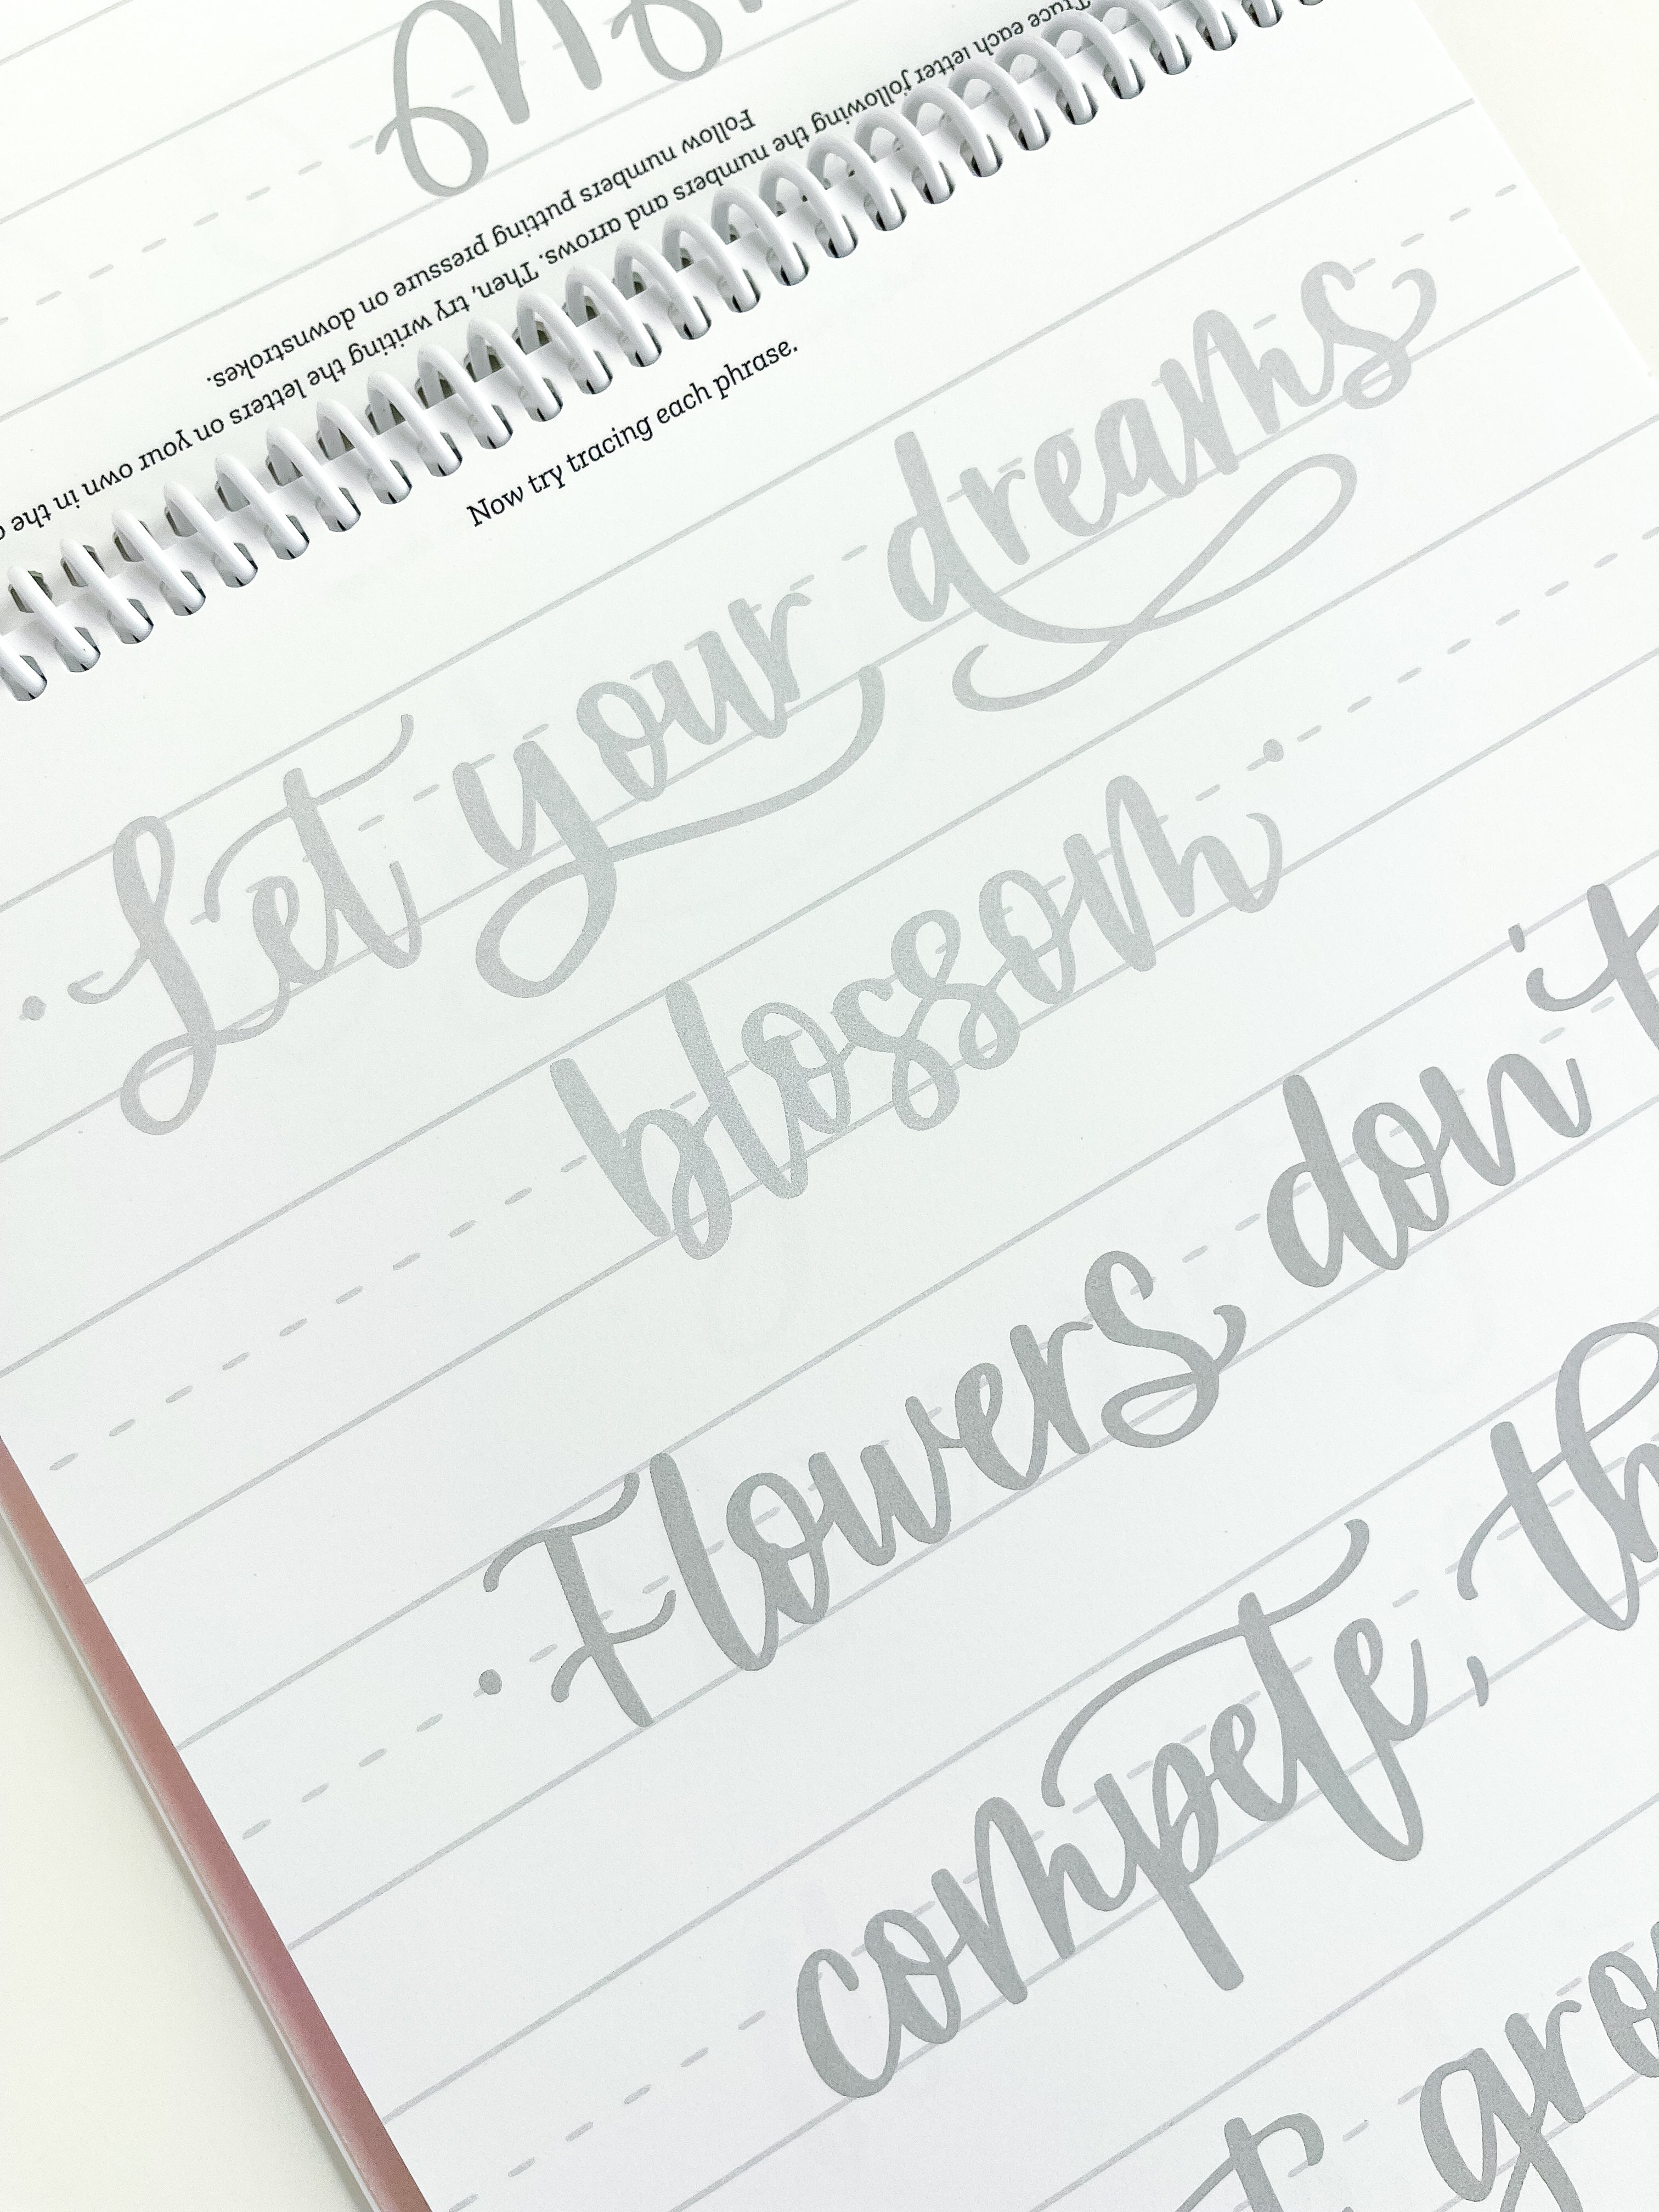 Follow numbers putting pressure on downstrokes.
Trace each letter following the numbers and arrows. Then, try writing the letters on your own in the
Now try tracing each phrase.
· Let your dreams
blossom ·
· Flowers don't
compete,